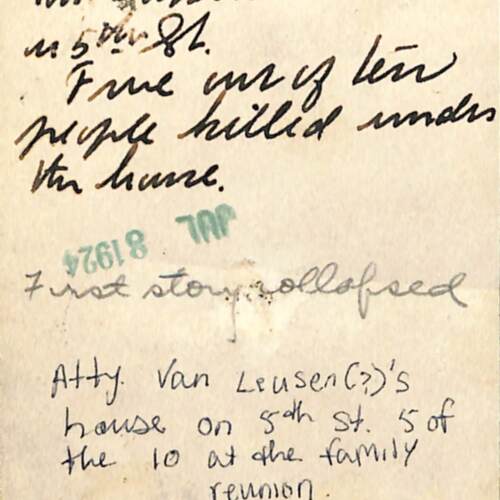 on 5th St.
Five out of ten
people killed under
the house.
JUL
8 1924
First story collapsed
Atty. Van Leusen(?)'s
house on 5th St. 5 of
the 10 at the family
reunion.